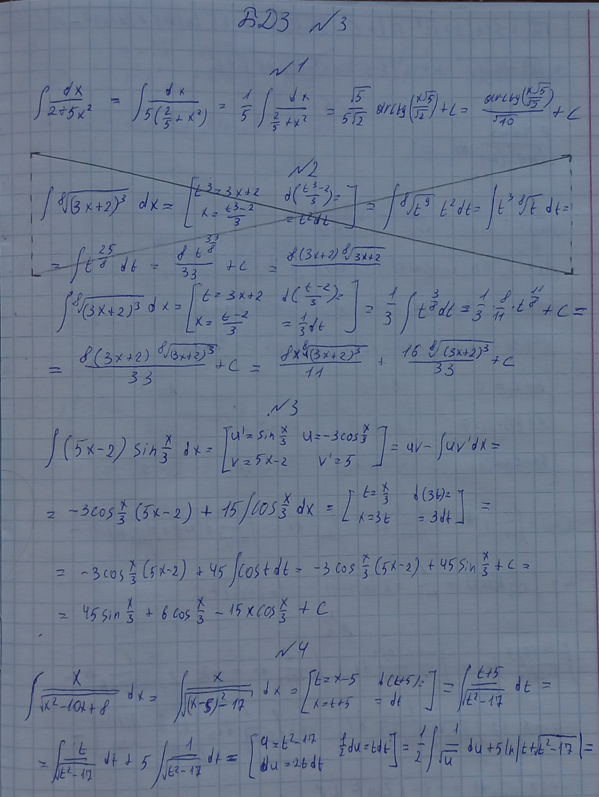 БДЗ №3
№1
∫ dx/(2+5x²) = ∫ dx/(5(2/5+x²)) = 1/5 ∫ dx/(2/5+x²) = √5/(5√2) arctg(x√5/√2)+C = arctg(x√5/√2)/√10 + C
№2
∫ ⁸√(3x+2)³ dx = [t³=3x+2 d((t³-2)/3)= x=(t³-2)/3 =t²dt] = ∫ ⁸√t⁹ t²dt = ∫ t³ ⁸√t dt =
= ∫ t^(25/8) dt = 8t^(33/8)/33 + C = 8(3x+2) ⁸√(3x+2)
∫ ⁸√(3x+2)³ dx = [t=3x+2 d((t-2)/3)= x=(t-2)/3 =1/3 dt] = 1/3 ∫ t^(3/8) dt = 1/3 · 8/11 · t^(11/8) + C =
= 8(3x+2) ⁸√(3x+2)³/33 + C = 8x ⁸√(3x+2)³/11 + 16 ⁸√(3x+2)³/33 + C
№3
∫ (5x-2) sin x/3 dx = [u'=sin x/3 u=-3cos x/3 v=5x-2 v'=5] = uv-∫uv'dx =
= -3cos x/3 (5x-2) + 15∫cos x/3 dx = [t=x/3 d(3t)= x=3t =3dt] =
= -3cos x/3 (5x-2) + 45∫cos t dt = -3cos x/3 (5x-2) + 45sin x/3 + C =
= 45sin x/3 + 6cos x/3 - 15xcos x/3 + C
№4
∫ x/√(x²-10x+8) dx = ∫ x/√((x-5)²-17) dx = [t=x-5 d(t+5)= x=t+5 =dt] = ∫ (t+5)/√(t²-17) dt =
= ∫ t/√(t²-17) dt + 5 ∫ 1/√(t²-17) dt = [u=t²-17 1/2 du=tdt du=2tdt] = 1/2 ∫ 1/√u du + 5ln|t+√(t²-17)| =